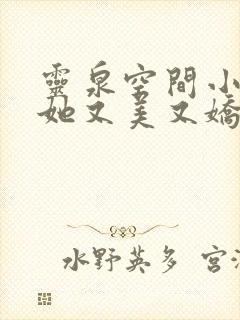 靈泉空間小
她又美又嬌
水野英多 宮